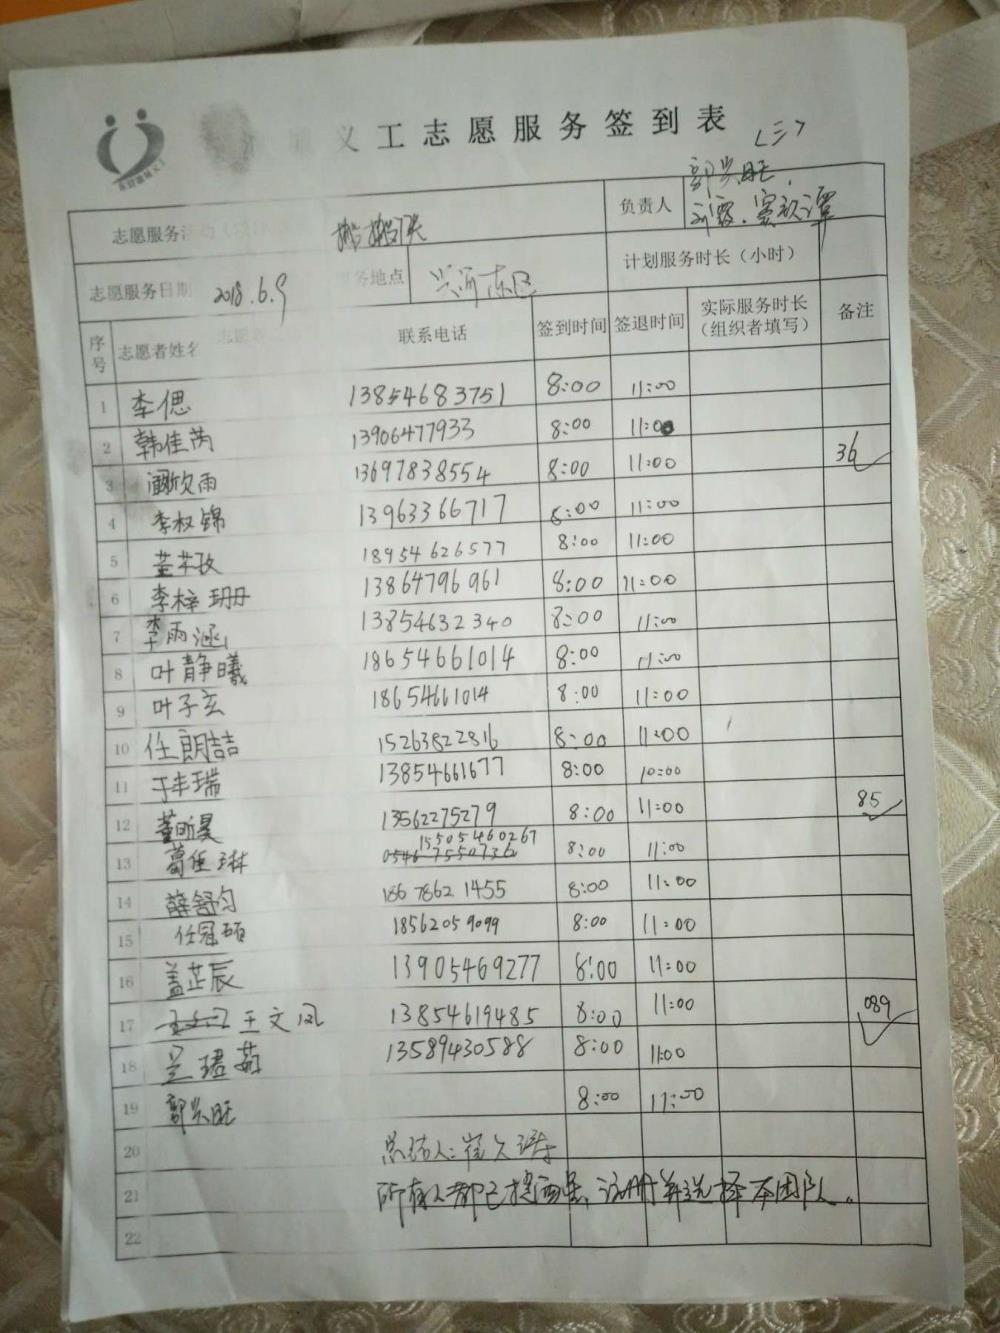 义工志愿服务签到表
<三>
郭兴旺、
志愿服务活动 负责人
志愿服务日期 2018.6.9 服务地点 兴河东区 计划服务时长（小时）
序号 志愿者姓名 联系电话 签到时间 签退时间 实际服务时长（组织者填写） 备注
1 李偲 13854683751 8:00 11:00
2 韩佳芮 13906477933 8:00 11:00
3 阚欣雨 13697838554 8:00 11:00 36✓
4 李权锦 13963366717 8:00 11:00
5 18954626577 8:00 11:00
6 李梓珊 13864796961 8:00 11:00
7 李雨涵 13854632340 8:00 11:00
8 叶静曦 18654661014 8:00 11:00
9 叶子玄 18654661014 8:00 11:00
10 任朗喆 15263822816 8:00 11:00
11 于丰瑞 13854661677 8:00 10:00
12 董昕昊 13562275279 8:00 11:00 85✓
15505460267
13 葛佳琳 0546-7550736 8:00 11:00
14 薛舒匀 18678621455 8:00 11:00
15 任冠硕 18562059099 8:00 11:00
16 盖芷辰 13905469277 8:00 11:00
17 王文凤 13854619485 8:00 11:00 089✓
18 吴珺茹 13589430588 8:00 11:00
19 郭兴旺 8:00 11:00
20 总结人：崔
21 所有人都已 注册并选择本团队。
22